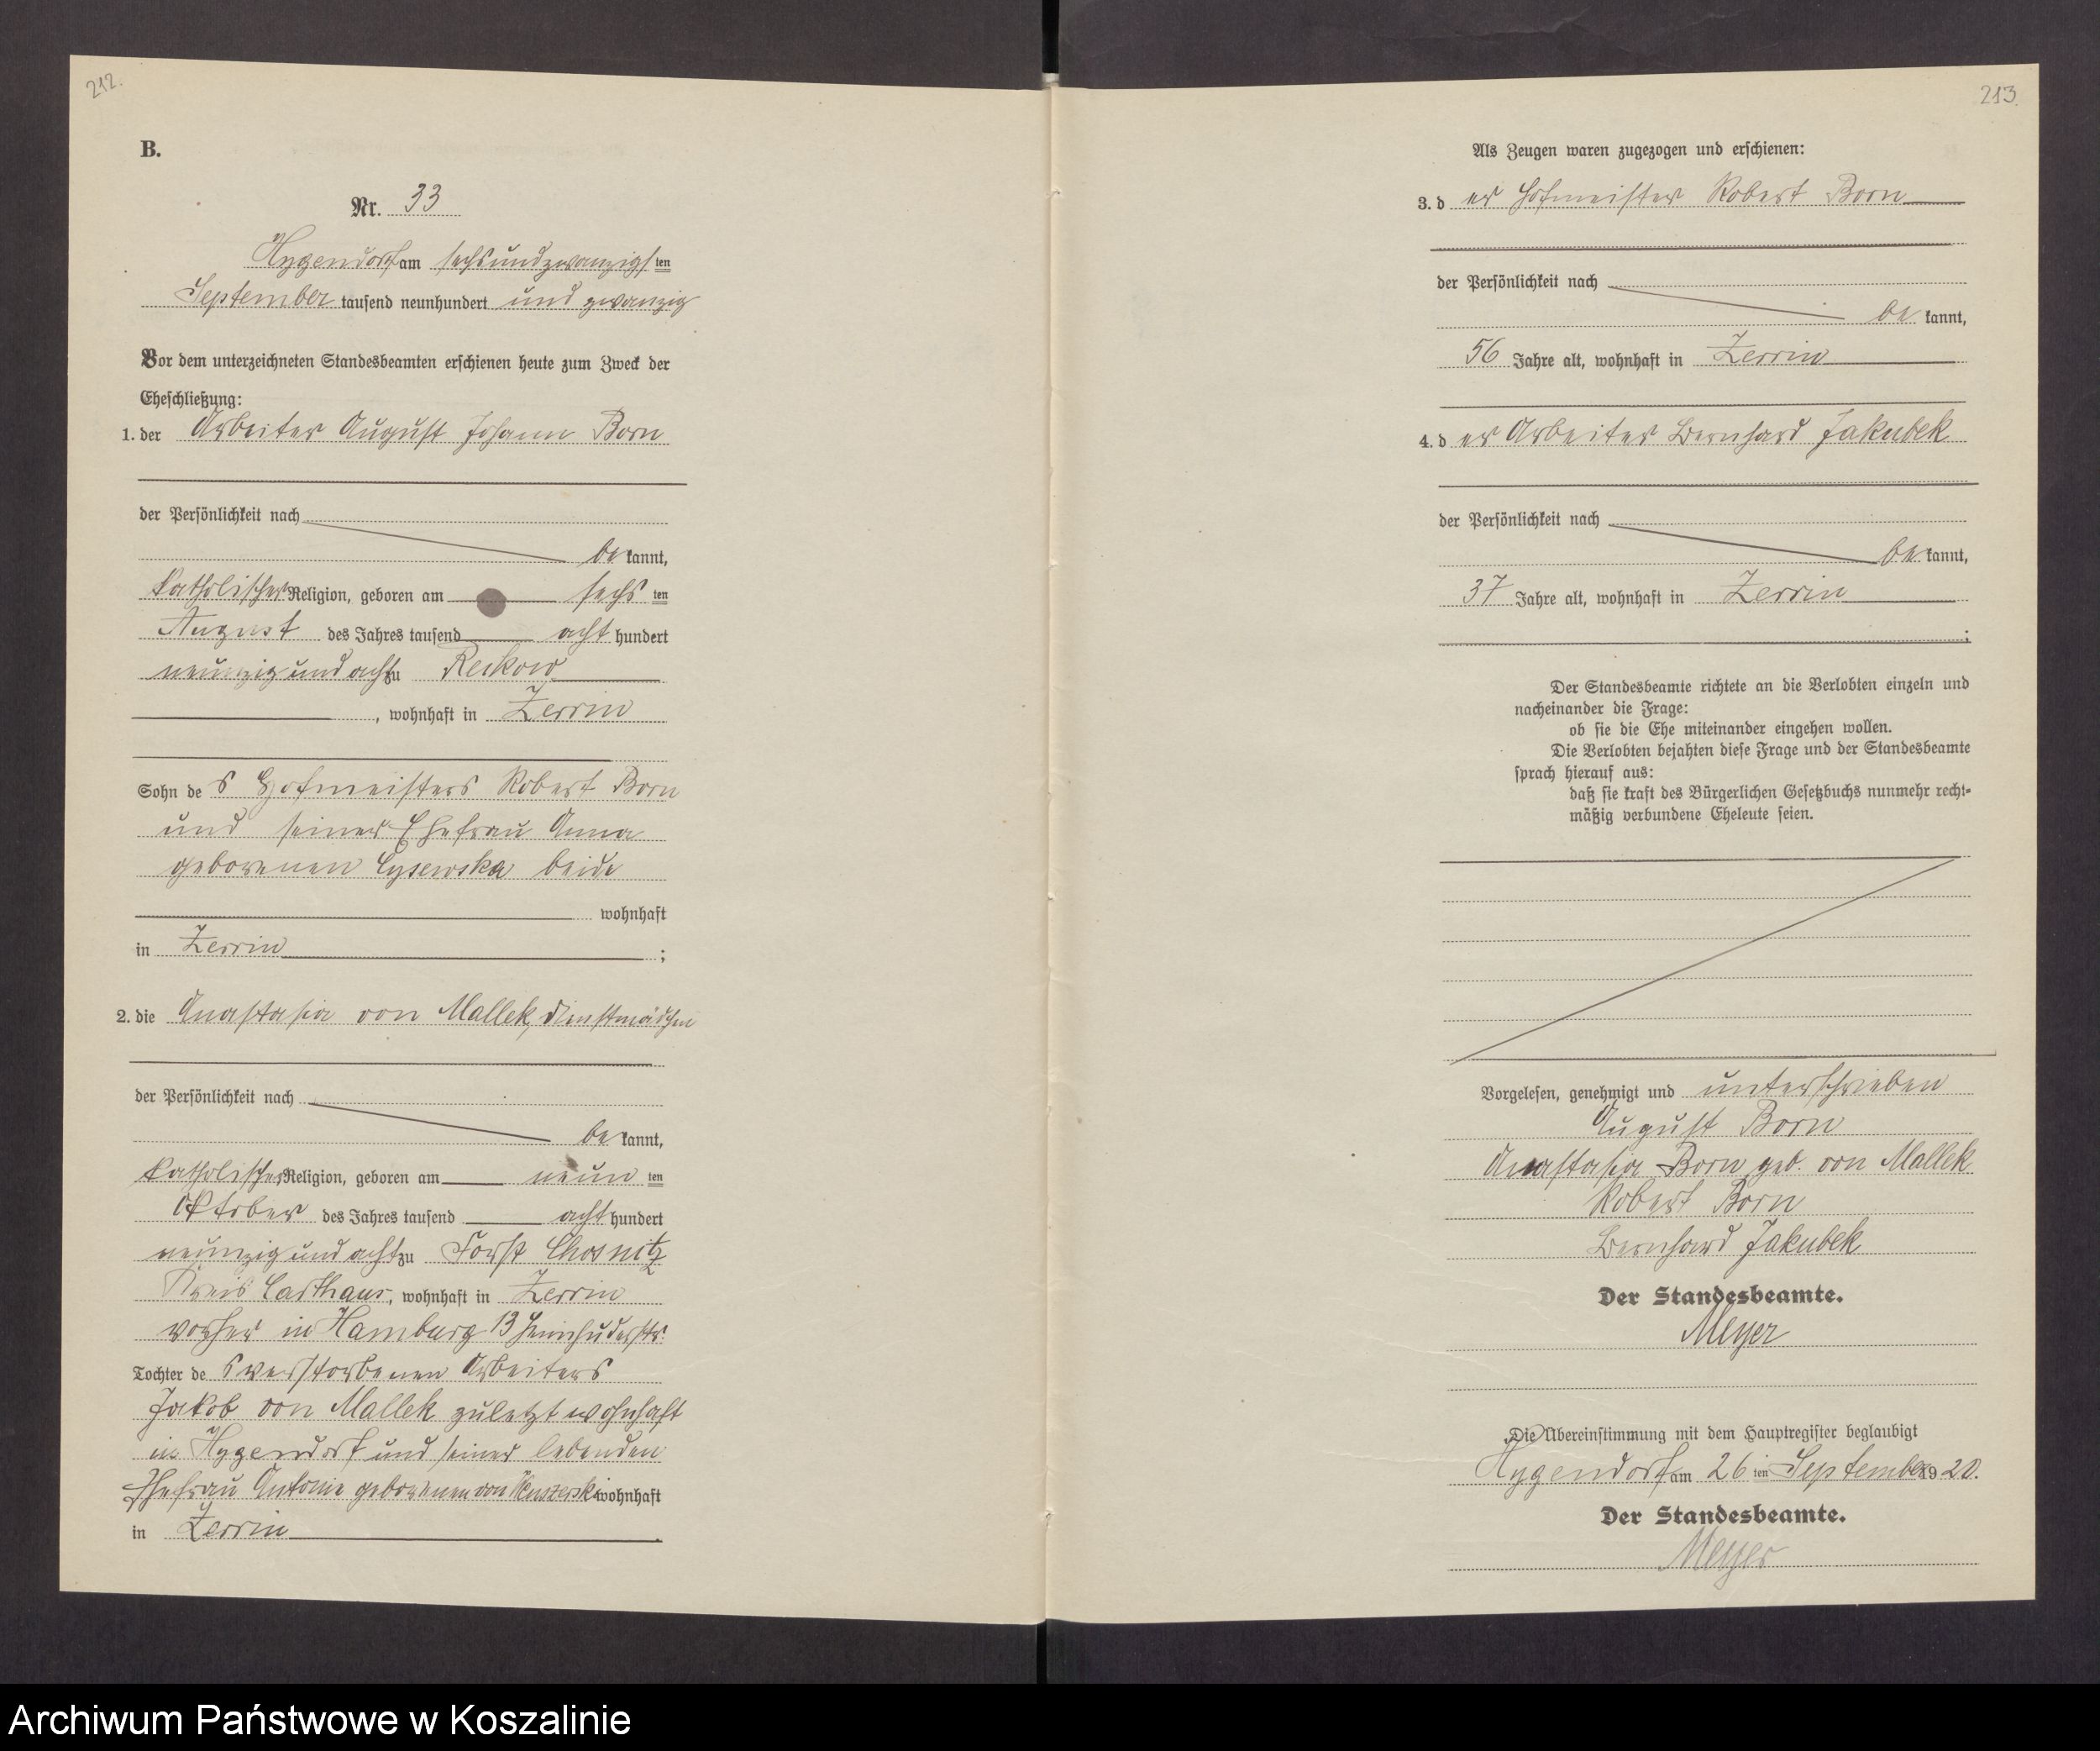 212.
B.
Nr. 33
Hygendorf am sechsundzwanzigsten
September tausend neunhundert und zwanzig
Vor dem unterzeichneten Standesbeamten erschienen heute zum Zweck der
Eheschließung:
1. der Arbeiter August Johann Born
der Persönlichkeit nach
bekannt,
katholischer Religion, geboren am sechsten
August des Jahres tausend acht hundert
neunzig und acht zu Reckow
, wohnhaft in Zerrin
Sohn des Hofmeisters Robert Born
und seiner Ehefrau Anna
geborenen Cysewska beide
wohnhaft
in Zerrin ;
2. die Anastasia von Mallek, Dienstmädchen
der Persönlichkeit nach
bekannt,
katholischer Religion, geboren am neunten
Oktober des Jahres tausend acht hundert
neunzig und acht zu Forst Chosnitz
Kreis Carthaus, wohnhaft in Zerrin
vorher in Hamburg 13
Tochter des verstorbenen Arbeiters
Jakob von Mallek zuletzt wohnhaft
in Hygendorf und seiner lebenden
Ehefrau Antonie geborenen von wohnhaft
in Zerrin .
213.
Als Zeugen waren zugezogen und erschienen:
3. der Hofmeister Robert Born
der Persönlichkeit nach
bekannt,
56 Jahre alt, wohnhaft in Zerrin
4. der Arbeiter Bernhard Jakubek
der Persönlichkeit nach
bekannt,
37 Jahre alt, wohnhaft in Zerrin
;
Der Standesbeamte richtete an die Verlobten einzeln und
nacheinander die Frage:
ob sie die Ehe miteinander eingehen wollen.
Die Verlobten bejahten diese Frage und der Standesbeamte
sprach hierauf aus:
daß sie kraft des Bürgerlichen Gesetzbuchs nunmehr recht-
mäßig verbundene Eheleute seien.
Vorgelesen, genehmigt und unterschrieben
August Born
Anastasia Born geb. von Mallek
Robert Born
Bernhard Jakubek
Der Standesbeamte.
Meyer
Die Übereinstimmung mit dem Hauptregister beglaubigt
Hygendorf am 26 ten September 1920.
Der Standesbeamte.
Meyer
Archiwum Państwowe w Koszalinie